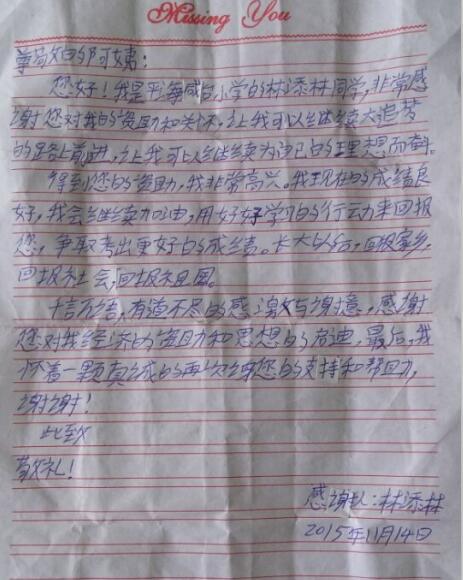 Missing You
尊敬的邹可姨:
您好!我是平海咸台小学的林添林同学,非常感
谢您对我的资助和关怀,让我可以继续大追梦
的路上前进,让我可以继续为自己的理想而奋。
得到您的资助,我非常高兴。我现在的成绩良
好,我会继续加油,用好好学习的行动来回报
您,争取考出更好的成绩。长大以后,回报家乡,
回报社会,回报祖国。
千言万语,有道不尽的感激与谢意,感谢
您对我经济的资助和思想的启迪,最后,我
怀着一颗真诚的再次谢您的支持和帮助,
谢谢!
此致
敬礼!
感谢人:林添林
2015年11月14日